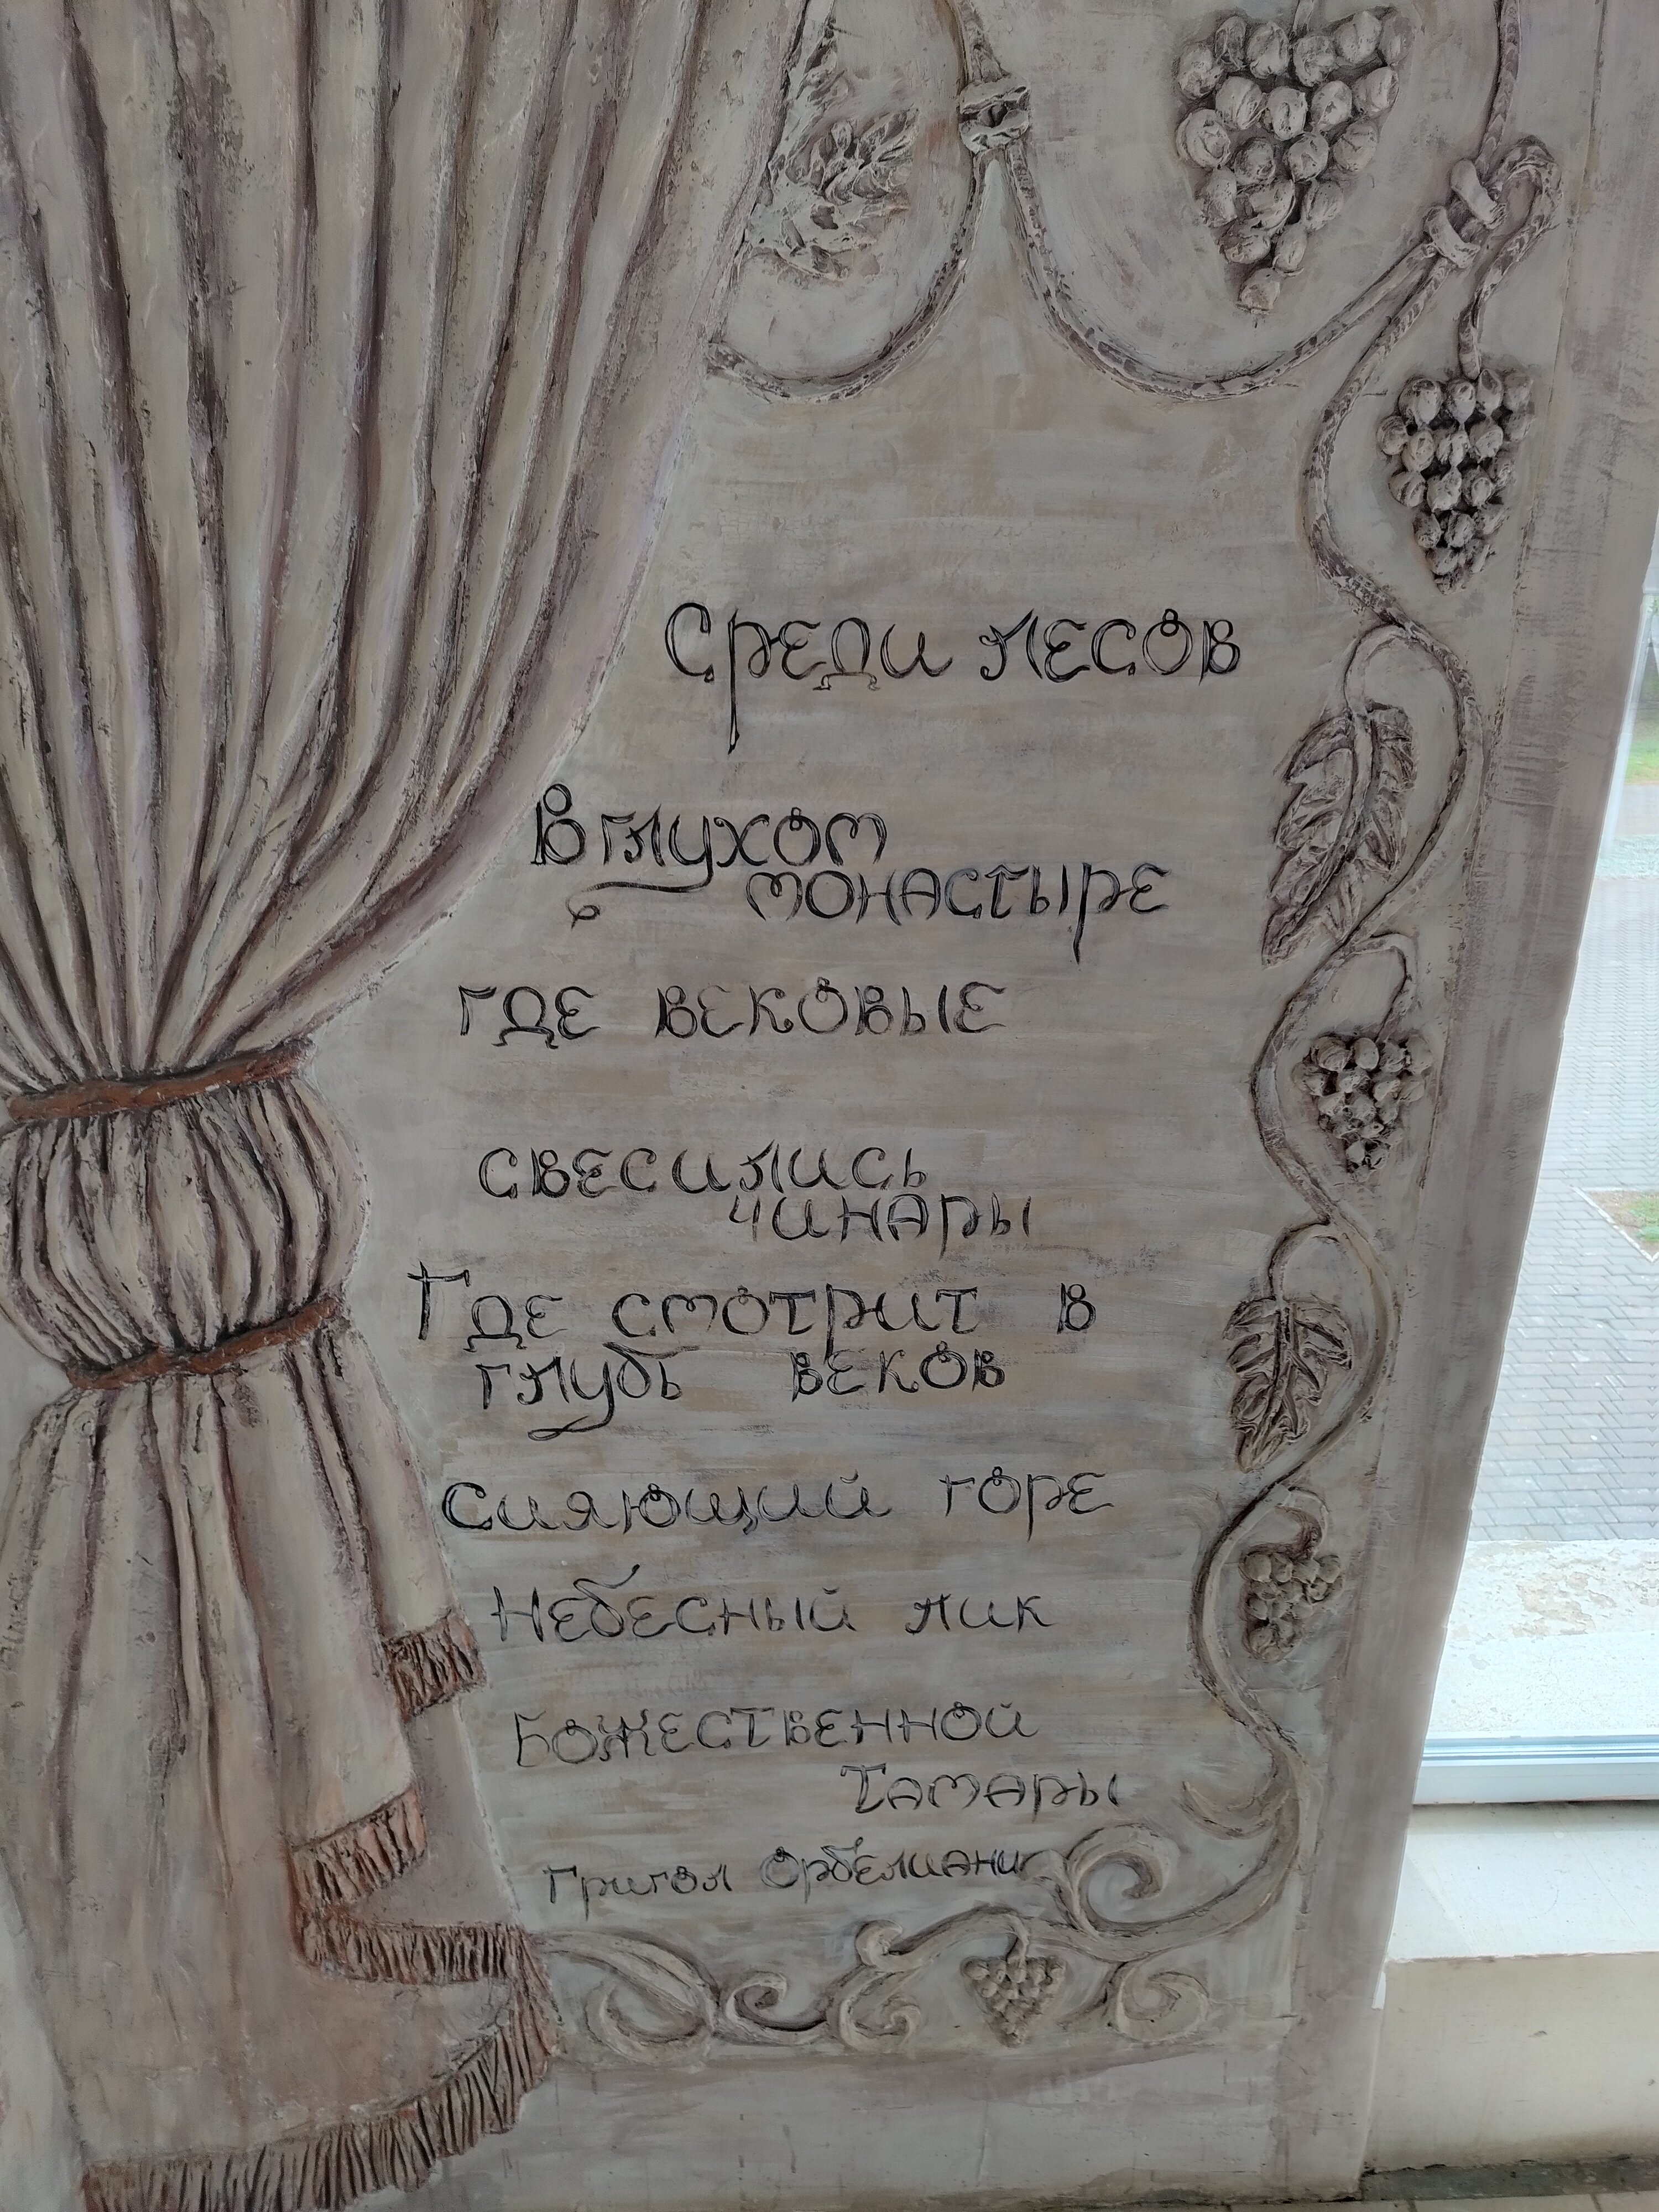 Среди лесов
В глухом
монастыре
где вековые
свесились
чинары
Где смотрит в
глубь веков
сияющий горе
Небесный лик
Божественной
Тамары
Григол Орбелиани